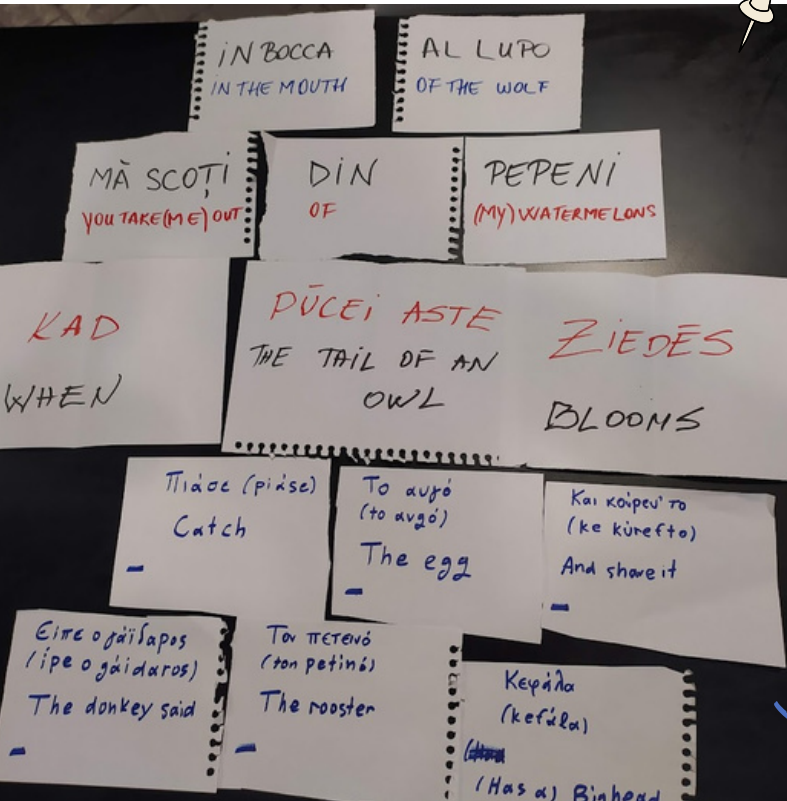 iN BOCCA
iN THE MOUTH
AL LUPO
OF THE WOLF
MĂ SCOȚi
YOU TAKE(ME) OUT
DiN
OF
PEPENi
(MY) WATERMELONS
KAD
WHEN
PŪCEi ASTE
THE TAIL OF AN
OWL
ZiEDĒS
BLOOMS
Πιάσε (piáse)
Catch
Το αυγό
(to avgó)
The egg
Και κούρευ' το
(ke kúrefto)
And shave it
Είπε ο γάϊδαρος
(ípe o gáidaros)
The donkey said
Τον πετεινό
(ton petinó)
The rooster
Κεφάλα
(kefála)
(Has a) Bighead